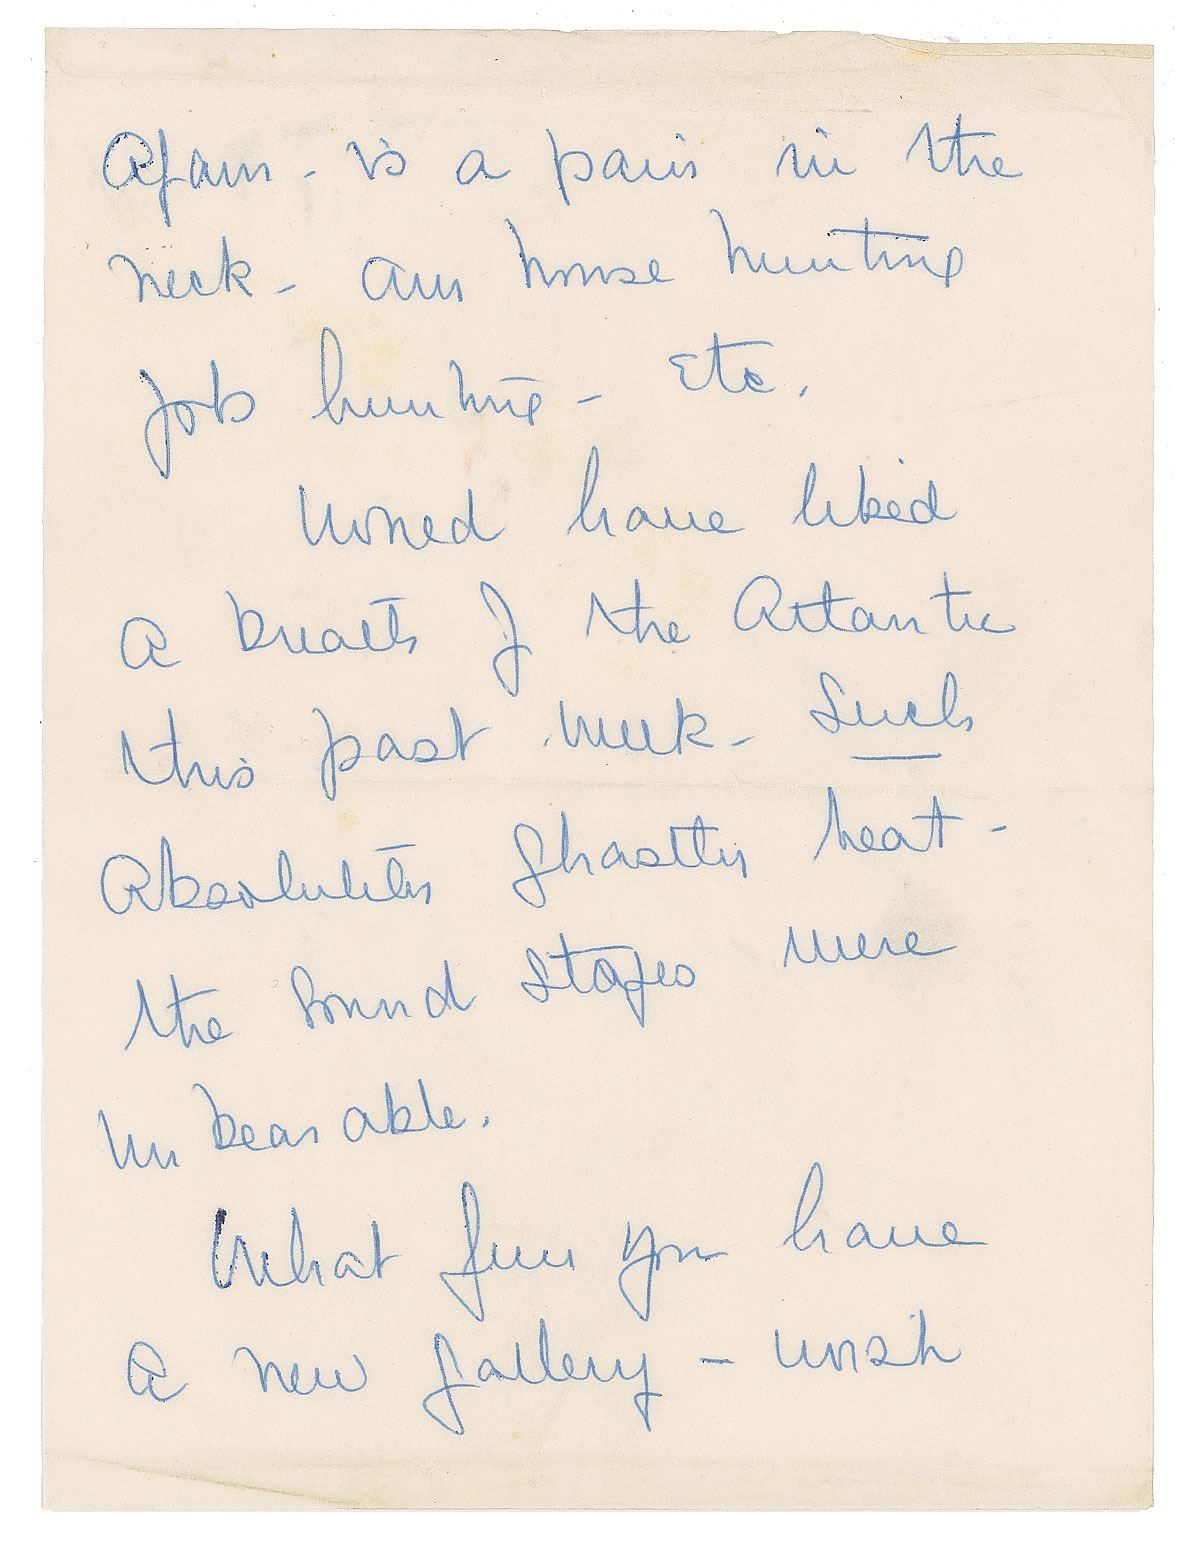 Again - is a pain in the
neck - am house hunting
job hunting - etc.
Would have liked
a breath of the Atlantic
this past week - Such
Absolutely ghastly heat -
the sound stages were
unbearable.
What fun you have
a new gallery - wish